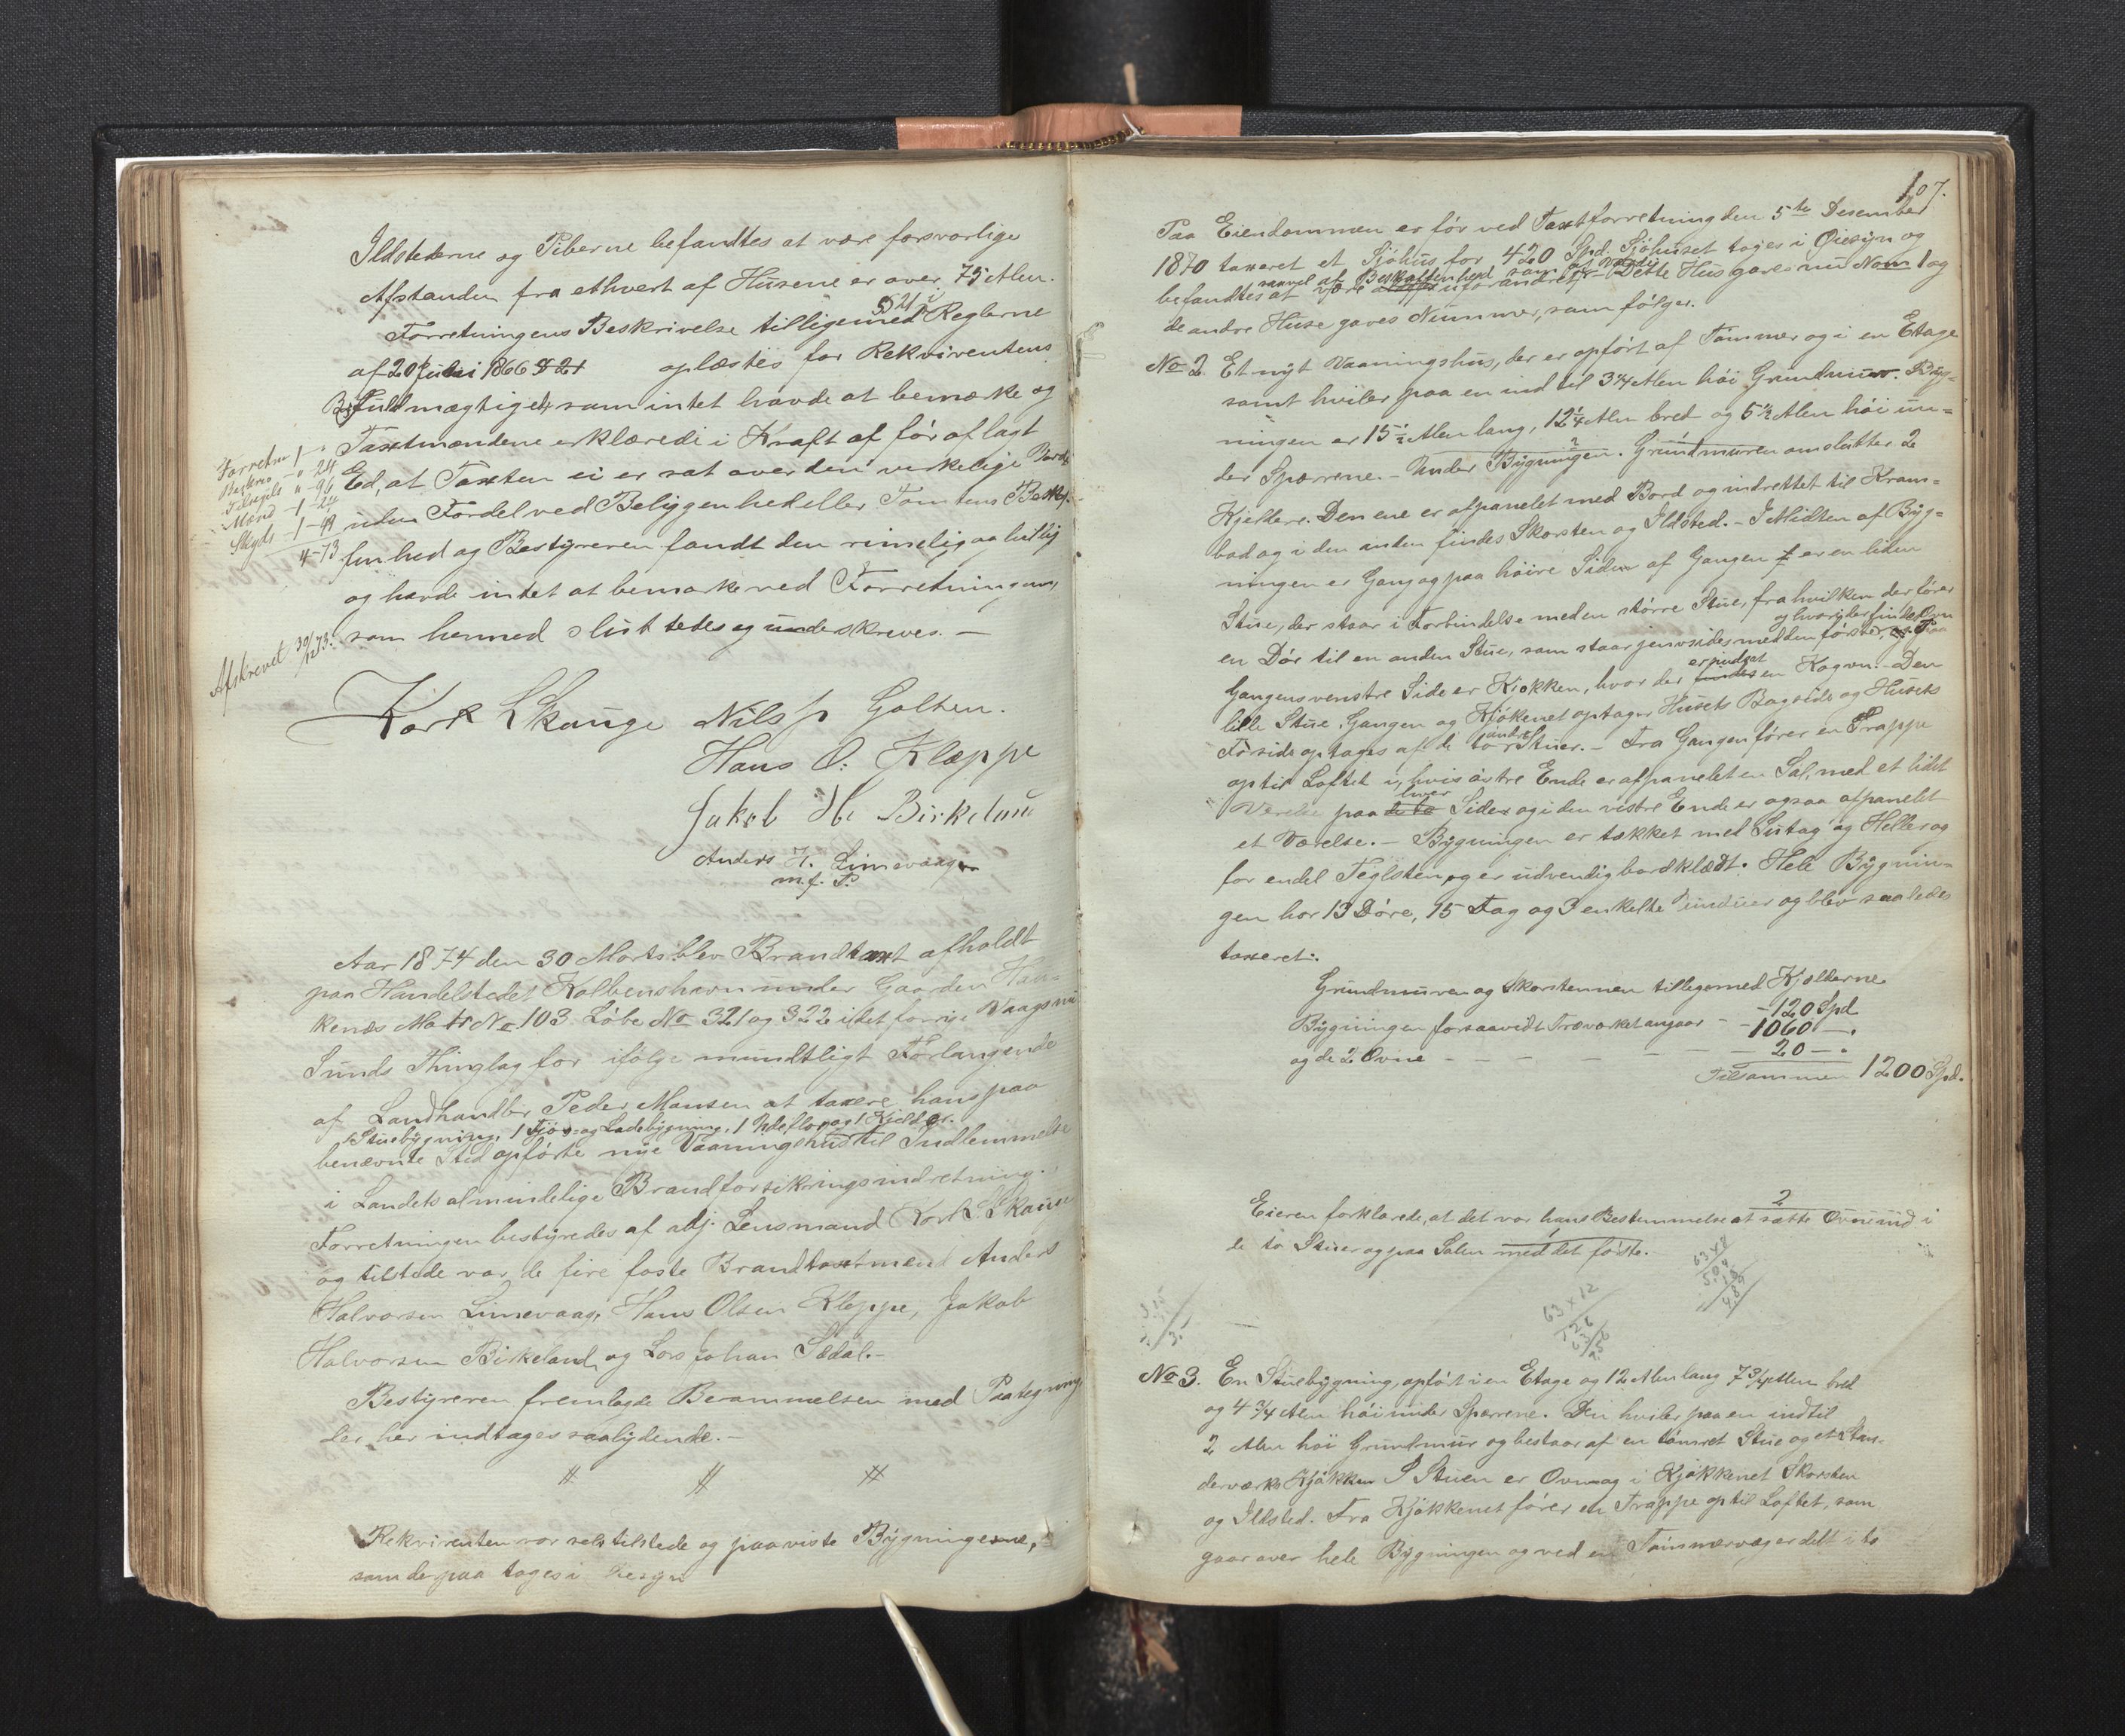 Ildstederne og Piberne befandtes at være forsvarlige
Afstanden fra ethvert af Husene er over 75 Alen.
Forretningens Beskrivelse tilligemed § 21 i Reglerne
af 20 Juli 1866 § 21 oplæstes for Rekvirentens
Fuldmægtiged, som intet havde at bemærke og
Taxtmændene erklærede i Kraft af før aflagt
Ed, at Taxten ei er sat over den virkelige Værdi
uden Fordel ved Beliggenhed eller Tomtens Beskaf-
fenhed og Bestyreren fandt den rimelig og billig
og havde intet at bemærke ved Forretningen,
som hermed sluttedes og underskreves. —
Forretn 1 - "
Beskriv - " - 24
" - 96
Mænd - 1 - 24
Skyds - 1 - 49
4 - 73
Afskrevet 30/12 73.
Kort LSkauge Nils P Golten.
Hans O. Klæppe
Jakob H. Birkelund
Anders H. Limevaag
m. f. P.
Aar 1874 den 30 Marts blev Brandtaxt afholdt
paa Handelstedet Kolbenshavn under Gaarden Hau-
kenæs Matr No 103 Løbe No 321 og 322 i det forrige Vaagsni
Sunds Thinglag for ifølge mundtligt Forlangende
af Landhandler Peder Monsen at taxere hans paa
1 Stuebygning, 1 Fjøs- og Ladebygning, 1 Udeflor og 1 Kjelder.
benævnte Sted opførte nye Vaaningshus til Indlemmelse
i Landets almindelige Brandforsikringsindretning.
Forretningen bestyredes af adj. Lensmand Kort L. Skauge
og tilstede var de fire faste Brandtaxtmænd Anders
Halvorsen Limevaag, Hans Olsen Kleppe, Jakob
Halvorsen Birkeland og Lars Johan Sædal. -
Bestyreren fremlagde Berammelsen med Paategning
der her indtages saalydende. -
# # #
Rekvirenten var selv tilstede og paaviste Bygningerne,
som derpaa toges i Øiesyn
107.
Paa Eiendommen er før ved Taxtforretning den 5te Desember
1870 taxeret et Sjøhus for 420 Spd. Sjøhuset toges i Øiesyn og
saavel af Beskaffenhed som af Værdi
befandtes at være uforandret. - Dette Hus gaves nu Nom 1 og
de andre Huse gaves Nummer, som følger.
No 2. Et nyt Vaaningshus, der er opført af Tømmer og i en Etage
samt hviler paa en indtil 3 3/4 Alen høi Grundmur. Byg-
ningen er 15 1/2 Alen lang, 12 1/4 Alen bred og 5 1/2 Alen høi un-
der Spærrene. - Under Bygningen. Grundmuren omslutter 2
Kjeldere. Den ene er afpanelet med Bord og indrettet til Kram-
bod og i den anden findes Skorsten og Ildsted. - I Midten af Byg-
ningen er Gang og paa høire Side af Gangen er en liden
Stue, der staar i Forbindelse med en større Stue, fra hvilken der fører
og hvori der findes Ovn
en Dør til en anden Stue, som staar jevnsides med den første, Paa
Gangens venstre Side er Kjøkken, hvor der er pudset en Kogovn. - Den
lille Stue, Gangen og Kjøkenet optager Husets Bagside og Husets
Forside optages af de to andre Stuer. - Fra Gangen fører en Trappe
op til Loftet i, hvis østre Ende er afpanelet en Sal, med et lidet
Værelse paa hver Side og i den vestre Ende er ogsaa afpanelet
et Værelse. - Bygningen er tækket med Sutag og Heller og
for endel Teglsten, og er udvendig bordklædt. Hele Bygnin-
gen har 13 Døre, 15 Fag og 3 enkelte Vinduer og blev saaledes
taxeret.
Grundmuren og Skorstennen tilligemed Kjelderne
- 120 Spd.
Bygningen forsaavidt Træværket angaar - - 1060 — .
og de 2 Ovne - - - - - - 20 — .
Tilsammen 1200 Spd.
Eieren forklarede, at det var hans Bestemmelse at sætte 2 Ovne ind i
de to Stuer og 1 paa Salen med det første.
63 × 8
504
63 × 12
126
No 3. En Stuebygning, opført i en Etage og 12 Alen lang 7 3/4 Alen bred
og 4 3/4 Alen høi under Spærrene. Den hviler paa en indtil
2 Alen høi Grundmur og bestaar af en tømret Stue og et Stan-
derværks Kjøkken I Stuen er Ovn og i Kjøkkenet Skorsten
og Ildsted. Fra Kjøkkenet fører en Trappe op til Loftet, som
gaar over hele Bygningen og ved en Tømmervæg er delt i to